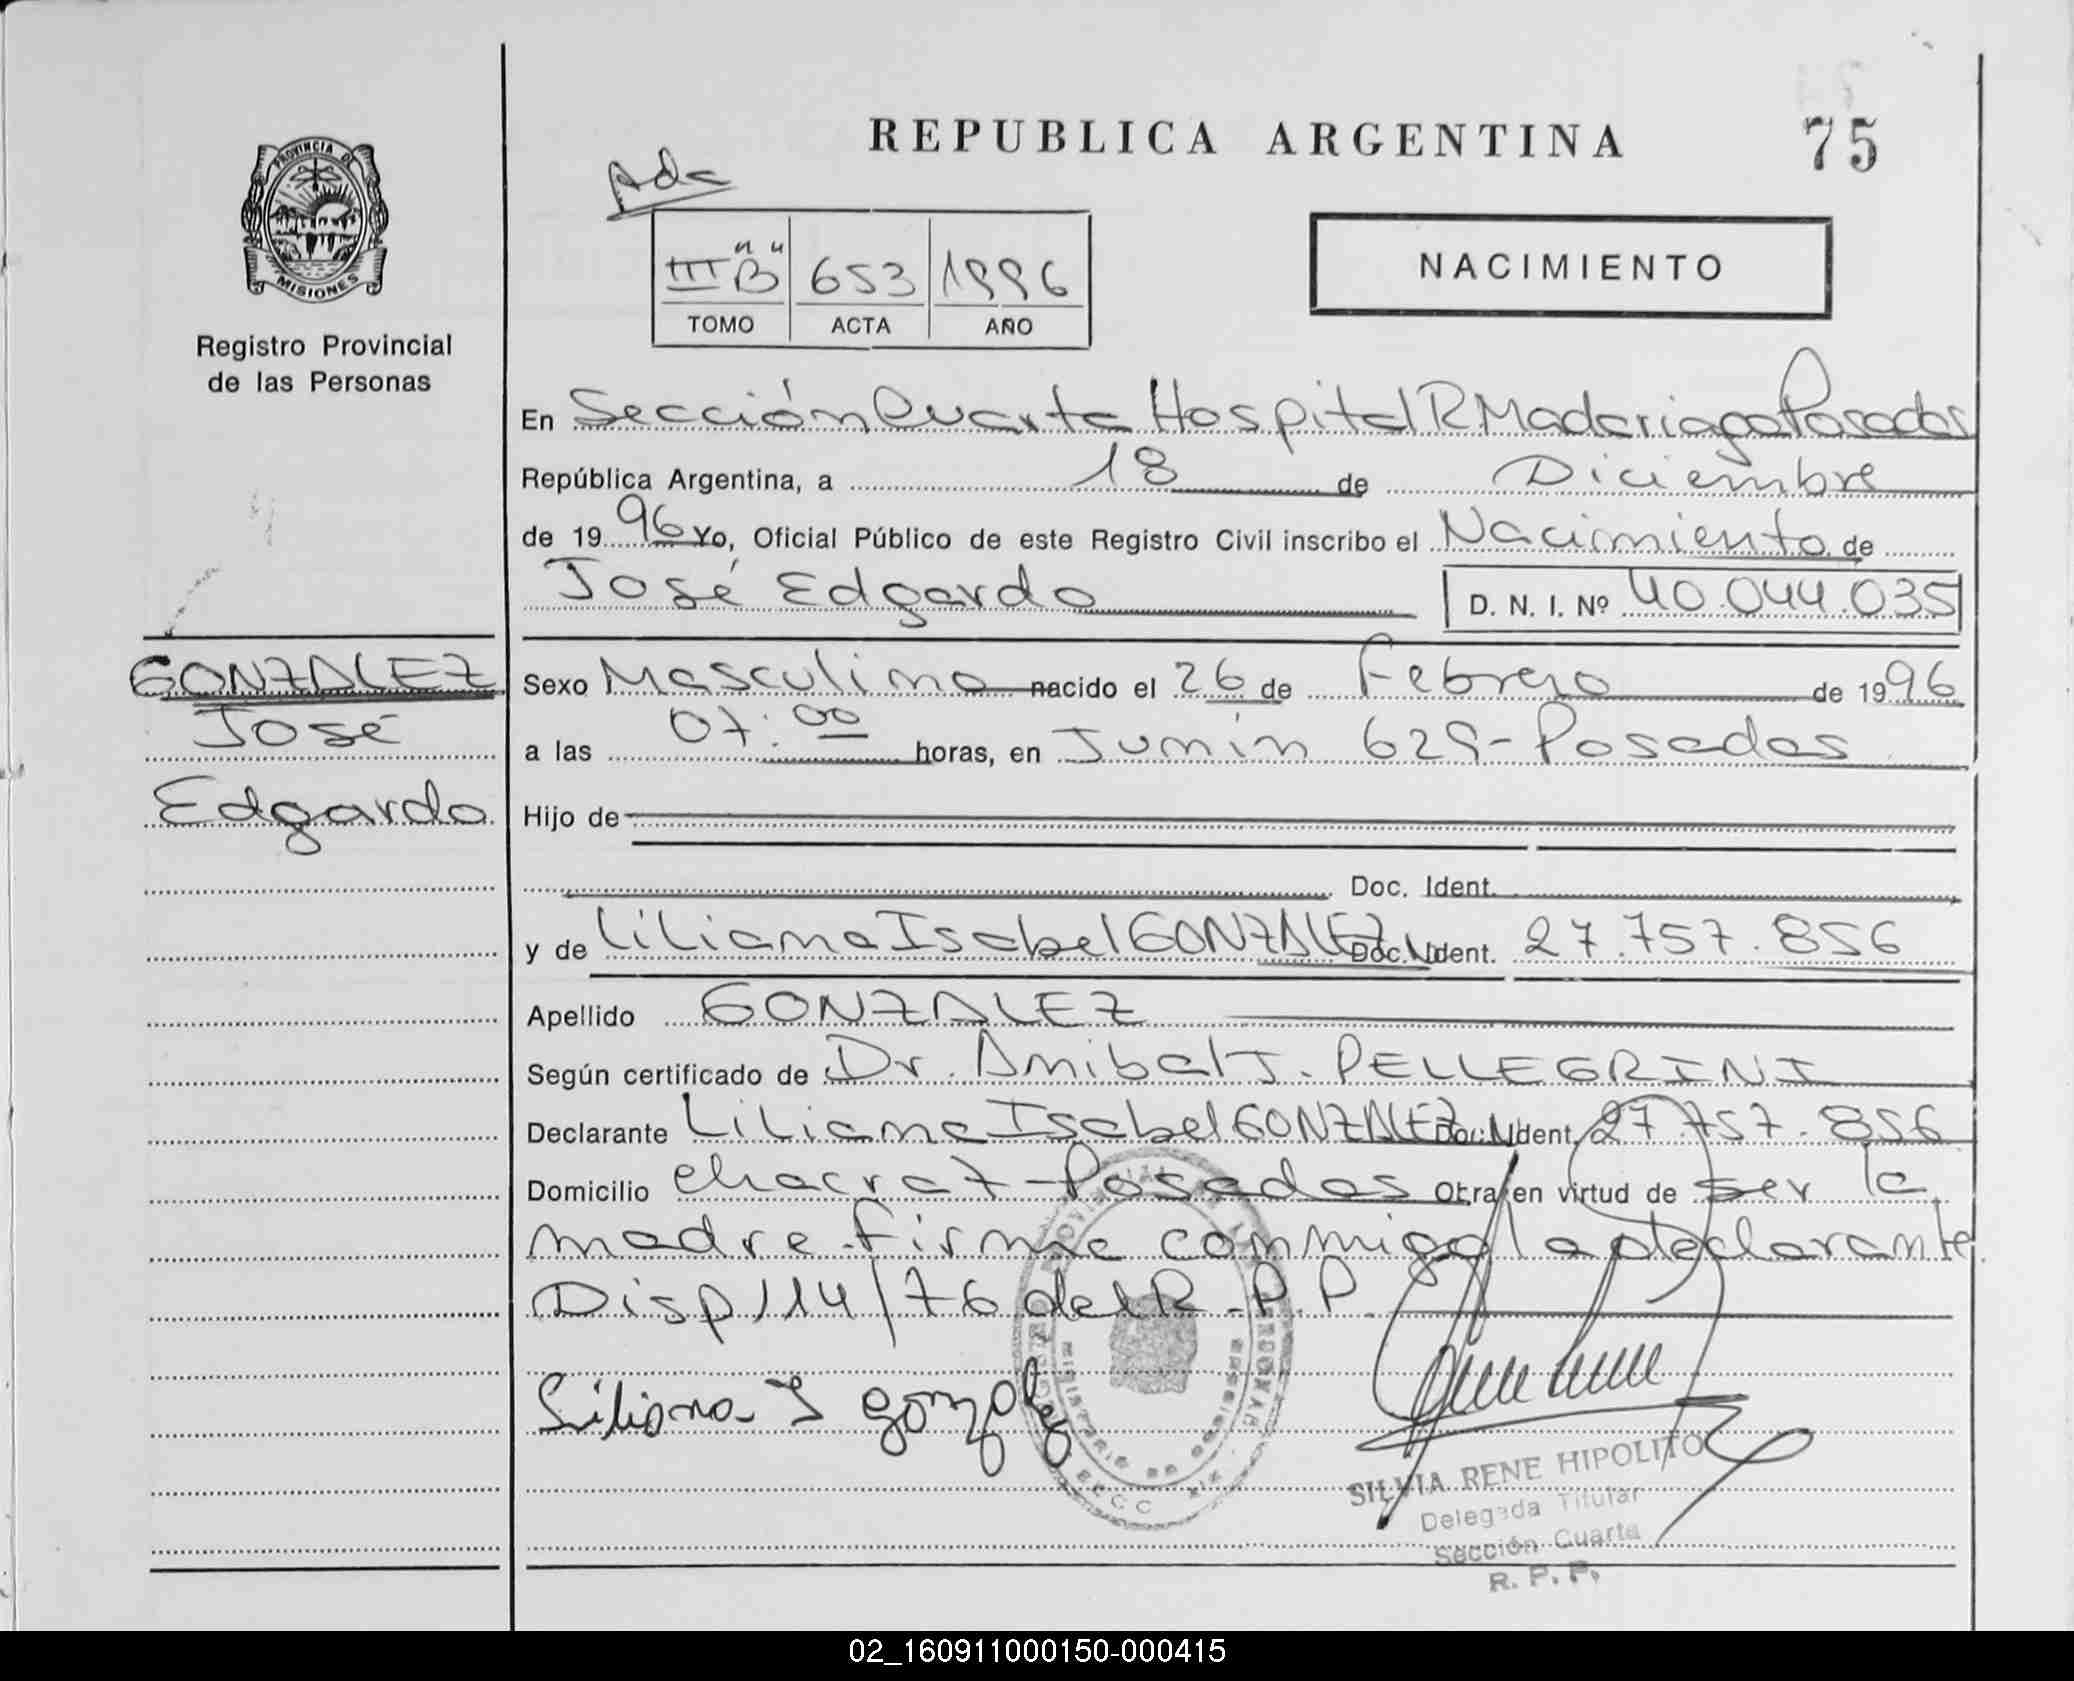 REPUBLICA ARGENTINA
75
Ada
III "B" 653 1996
TOMO ACTA AÑO
NACIMIENTO
PROVINCIA DE
MISIONES
Registro Provincial
de las Personas
En Sección Cuarta Hospital R Madariaga Posadas
República Argentina, a 18 de Diciembre
de 1996 Yo, Oficial Público de este Registro Civil inscribo el Nacimiento de
José Edgardo D. N. I. Nº 40.044.035
GONZALEZ
José
Edgardo
Sexo Masculino nacido el 26 de Febrero de 1996
a las 07:00 horas, en Junín 629-Posadas
Hijo de
Doc. Ident.
y de Liliana Isabel GONZALEZ Doc. Ident. 27.757.856
Apellido GONZALEZ
Según certificado de Dr. Anibal J. PELLEGRINI
Declarante Liliana Isabel GONZALEZ Doc. Ident. 27.757.856
Domicilio chacra 7-Posadas Obra en virtud de ser la
madre. firma conmigo la declarante
Disp 114/76 del R.P.P.
Liliana I gonzalez
SILVIA RENE HIPOLITO
Delegada Titular
Sección Cuarta
R. P. P.
02_160911000150-000415